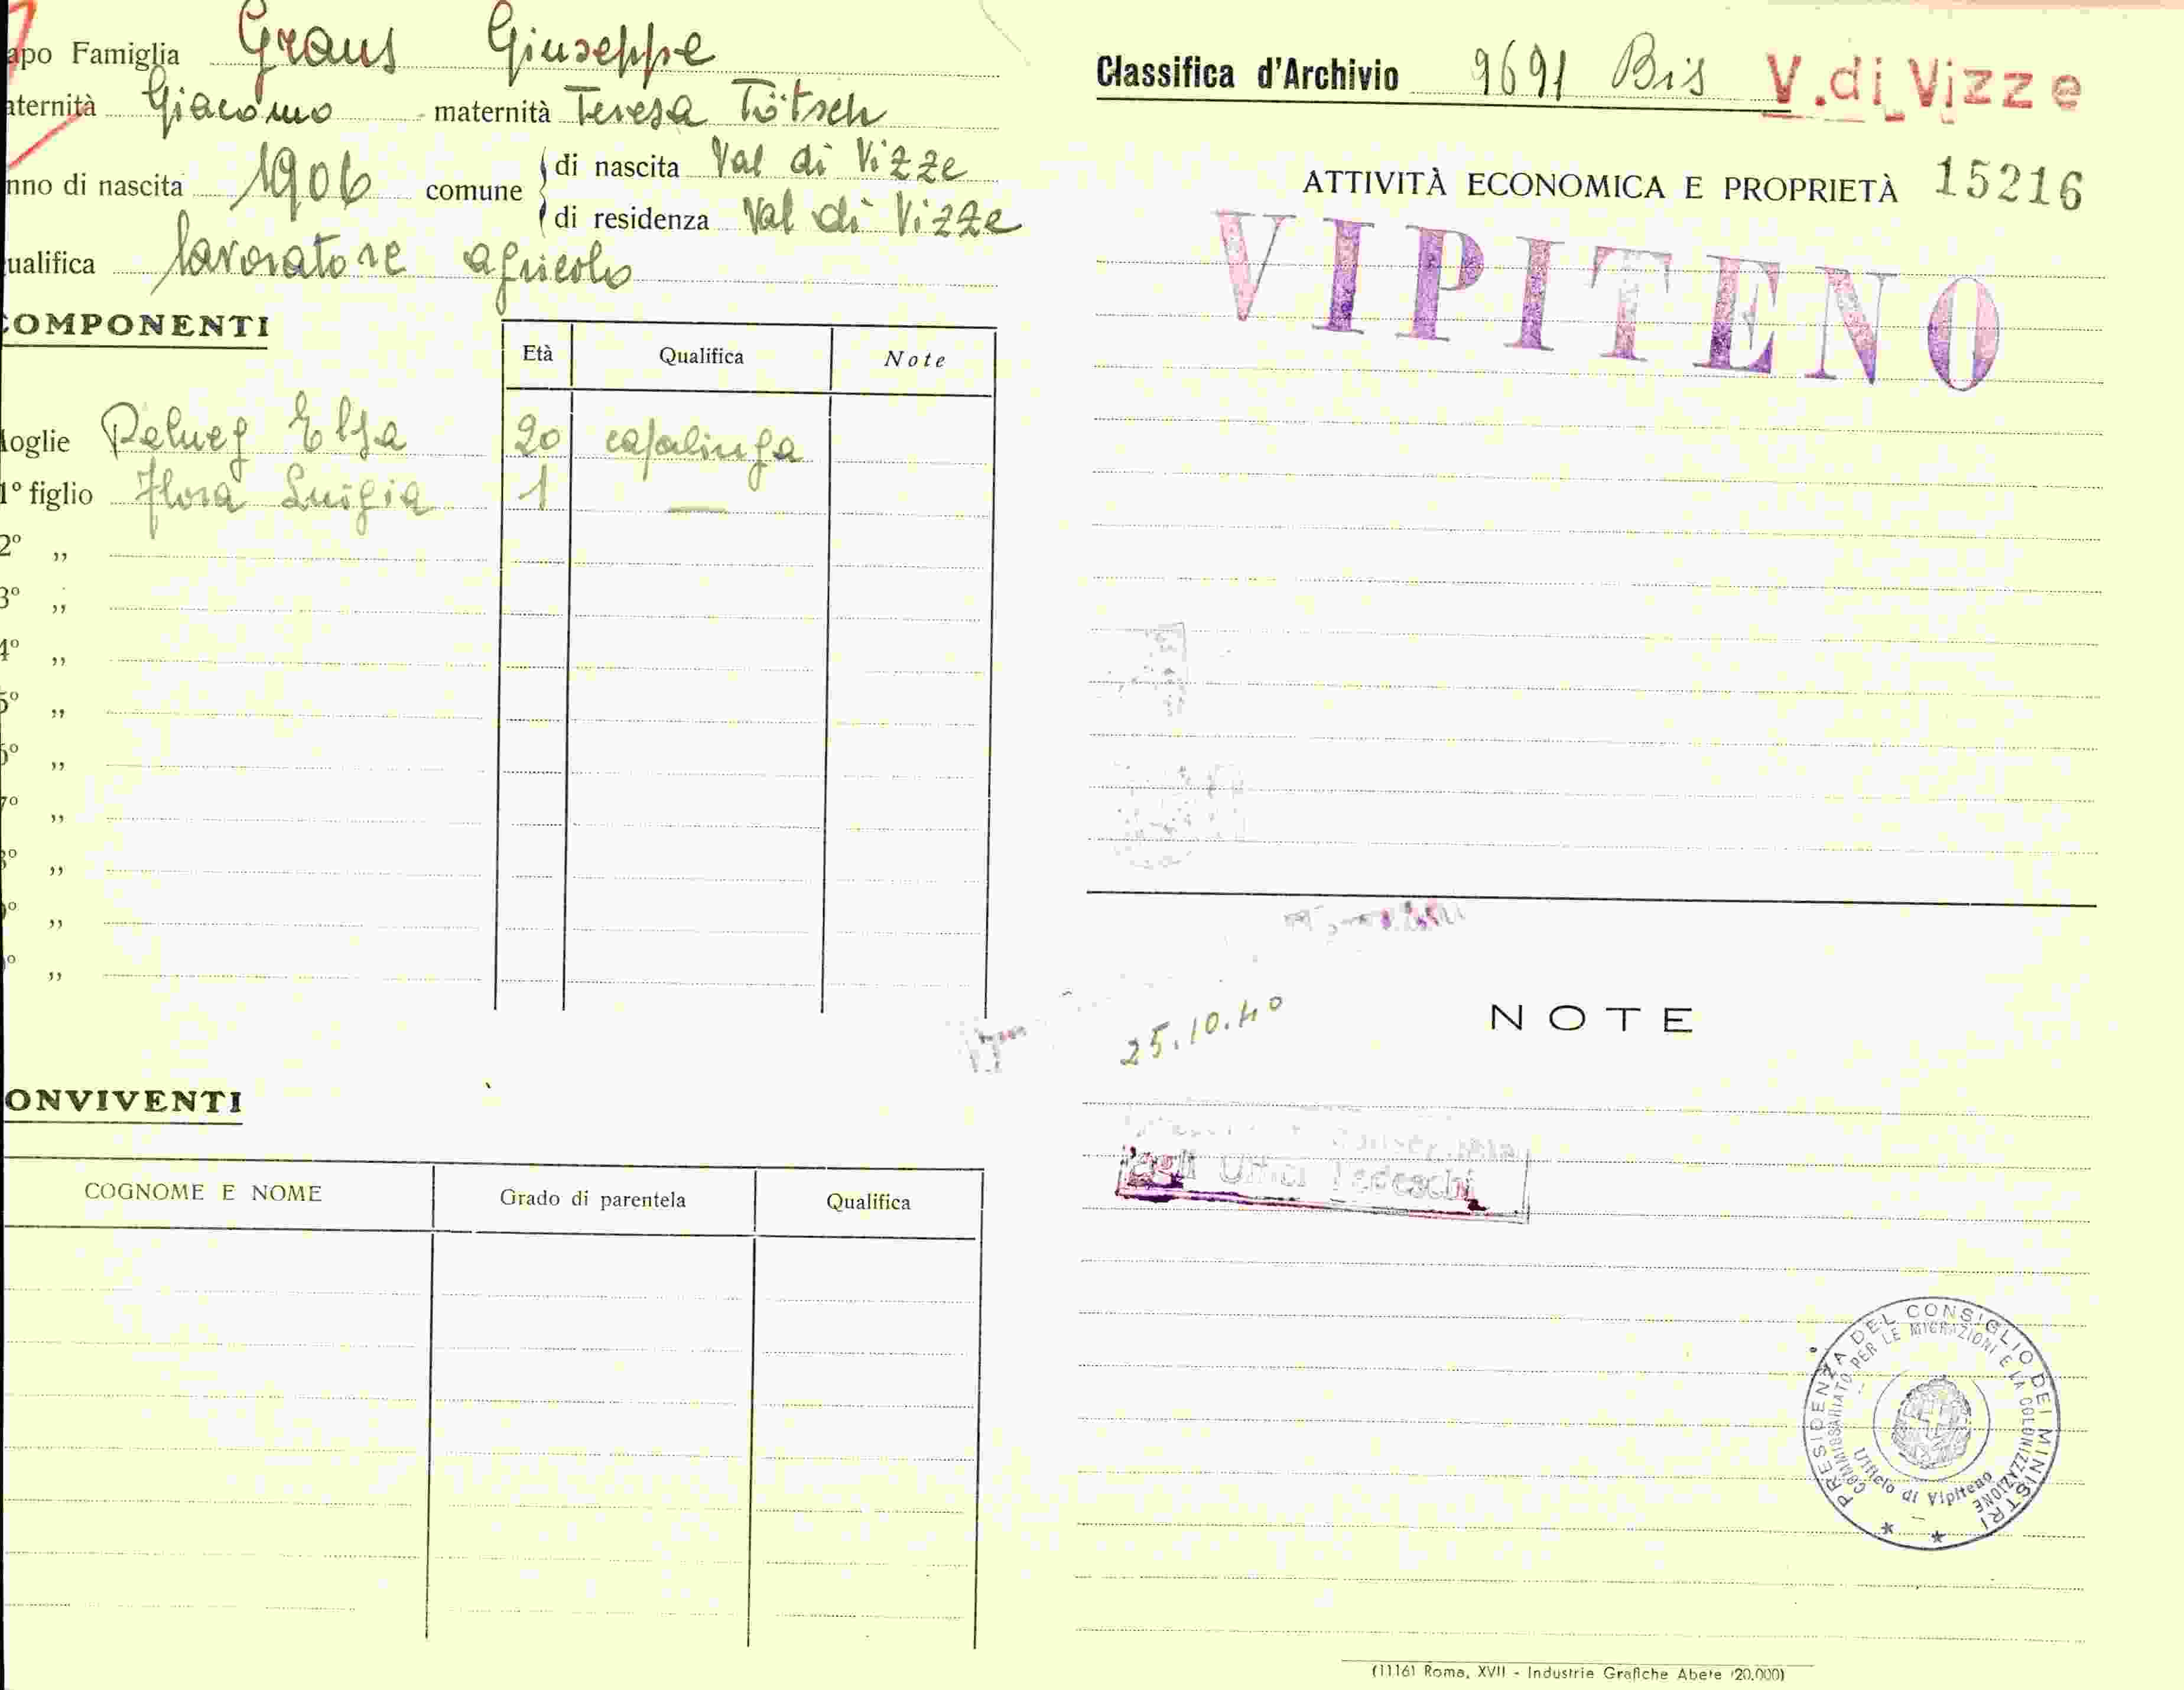 apo Famiglia Graus Giuseppe
aternità Giacomo maternità Teresa Tötsch
nno di nascita 1906 comune di nascita Val di Vizze
di residenza Val di Vizze
ualifica lavoratore agricolo
COMPONENTI
Età Qualifica Note
oglie Elsa 20 casalinga
1º figlio Flora Luigia 1 —
2º ,,
3º ,,
4º ,,
5º ,,
6º ,,
7º ,,
8º ,,
9º ,,
º ,,
ONVIVENTI
COGNOME E NOME Grado di parentela Qualifica
Classifica d'Archivio 9691 Bis V. di Vizze
ATTIVITÀ ECONOMICA E PROPRIETÀ 15216
VIPITENO
25.10.40
NOTE
dagli Uffici Tedeschi
PRESIDENZA DEL CONSIGLIO DEI MINISTRI
COMMISSARIATO PER LE MIGRAZIONI E LA COLONIZZAZIONE
Ufficio di Vipiteno
(1116) Roma, XVII - Industrie Grafiche Abete (20.000)